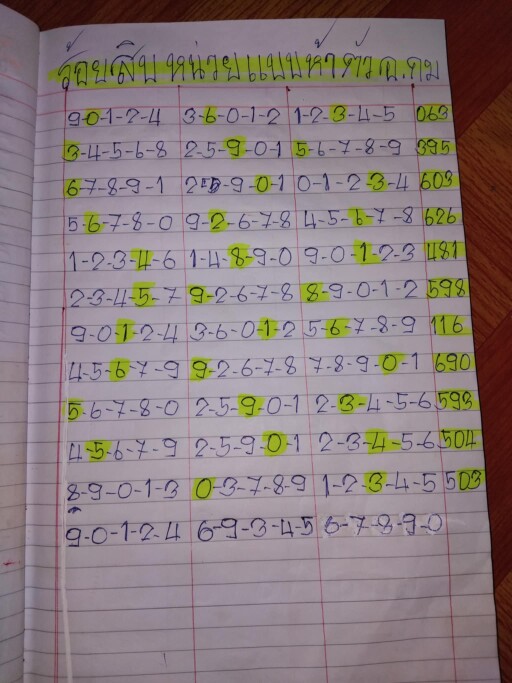 ร้อยสิบหน่วยแบบห้าตัวอ.ถม
9-0-1-2-4 3-6-0-1-2 1-2-3-4-5 063
3-4-5-6-8 2-5-9-0-1 5-6-7-8-9 395
6-7-8-9-1 2-5-9-0-1 0-1-2-3-4 603
5-6-7-8-0 9-2-6-7-8 4-5-6-7-8 626
1-2-3-4-6 1-4-8-9-0 9-0-1-2-3 481
2-3-4-5-7 9-2-6-7-8 8-9-0-1-2 598
9-0-1-2-4 3-6-0-1-2 5-6-7-8-9 116
4-5-6-7-9 9-2-6-7-8 7-8-9-0-1 690
5-6-7-8-0 2-5-9-0-1 2-3-4-5-6 593
4-5-6-7-9 2-5-9-0-1 2-3-4-5-6 504
8-9-0-1-3 0-3-7-8-9 1-2-3-4-5 503
9-0-1-2-4 6-9-3-4-5 6-7-8-9-0